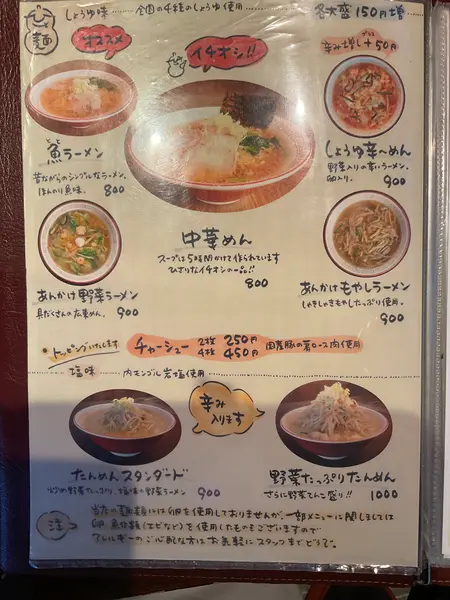 麺
しょうゆ味 全国の4種のしょうゆ使用 各大盛150円増
オススメ
イチオシ!!
辛み増し+50円
魚ラーメン
昔ながらのシンプルなラーメン。
ほんのり魚味。 800
中華めん
スープは5時間かけて作られています
ひざりなイチオシの一品!!
800
しょうゆ辛〜めん
野菜入りの辛いラーメン。
卵入り。 900
あんかけ野菜ラーメン
具だくさんの広東めん。 900
あんかけもやしラーメン
しゃきしゃきもやしたっぷり使用。
900
トッピングいたします チャーシュー 2枚 250円
4枚 450円
国産豚の肩ロース肉使用
塩味 内モンゴル岩塩使用
辛み入ります
たんめんスタンダード
炒め野菜たっぷり、塩味の野菜ラーメン 900
野菜たっぷりたんめん
さらに野菜てんこ盛り!! 1000
注
当店の麺類には卵を使用しておりませんが、一部メニューに関しましては
卵、魚介類(エビなど)を使用したものもございますので
アレルギーのご心配な方はお気軽にスタッフまでどうぞ。